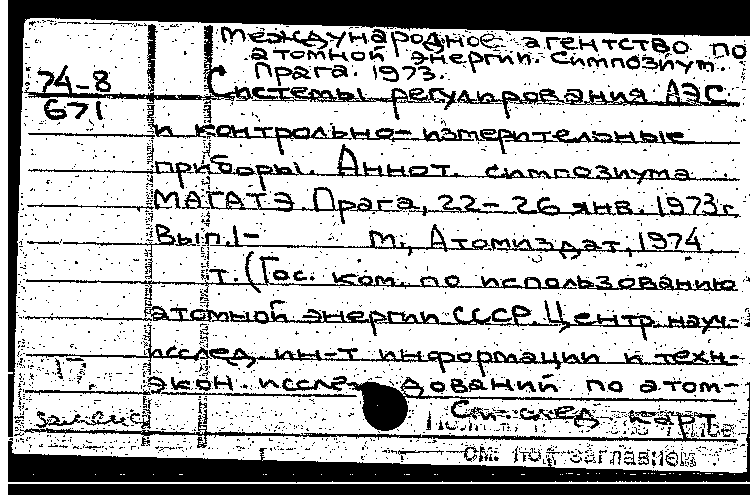 Международное агентство по
атомной энергии. Симпозиум.
Прага. 1973.
74-8
671
Системы регулирования АЭС
и контрольно-измерительные
приборы. Аннот. симпозиума
МАГАТЭ. Прага, 22-26 янв. 1973г.
Вып. 1- М., Атомиздат, 1974.
т. (Гос. ком. по использованию
атомной энергии СССР. Центр. науч.-
исслед. ин-т информации и техн-
экон. исследований по атом-
17.
См. след. карт
см. под заглавием